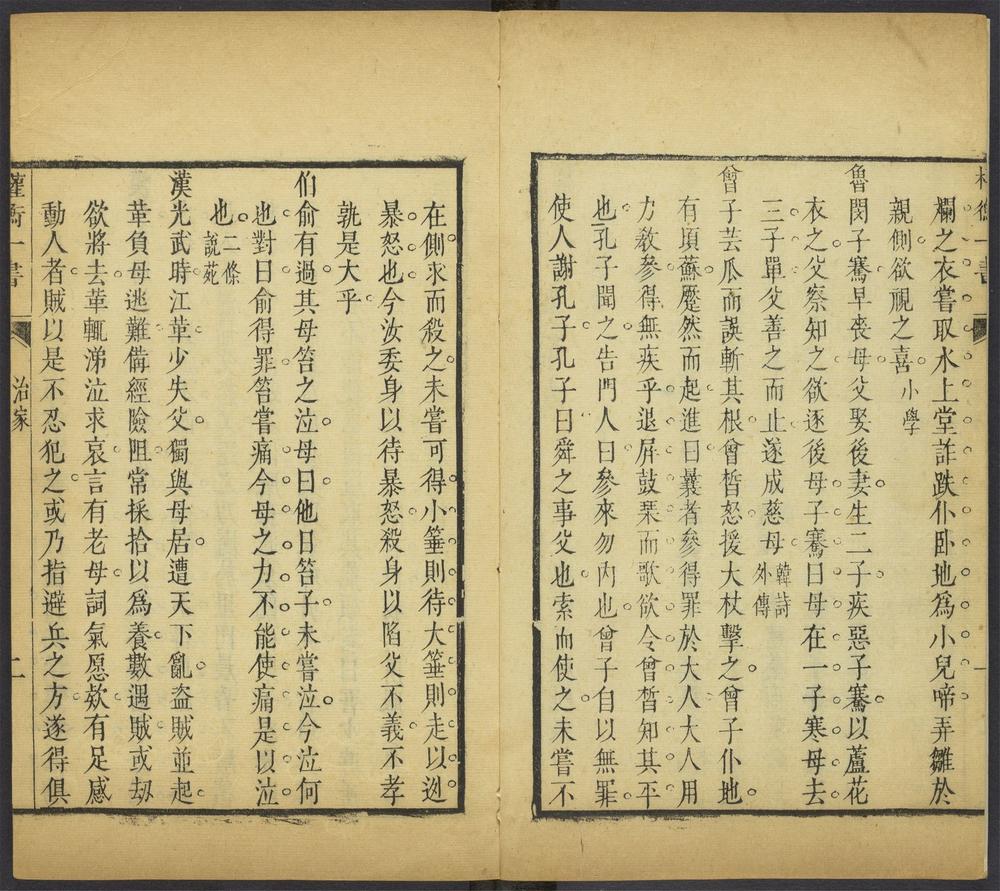 斕之衣嘗取水上堂詐跌仆卧地爲小兒啼弄雛於
親側欲視之喜小學
魯閔子騫早喪母父娶後妻生二子疾惡子騫以蘆花
衣之父察知之欲逐後母子騫曰母在一子寒母去
三子單父善之而止遂成慈母韓詩外傳
曾子芸瓜而誤斬其根曾皙怒援大杖擊之曾子仆地
有頃蘇蹷然而起進曰曩者參得罪於大人大人用
力敎參得無疾乎退屏鼓琹而歌欲令曾皙知其平
也孔子聞之告門人曰參來勿內也曾子自以無罪
使人謝孔子孔子曰舜之事父也索而使之未嘗不
在側求而殺之未嘗可得小箠則待大箠則走以迯
暴怒也今汝委身以待暴怒殺身以陷父不義不孝
孰是大乎
伯俞有過其母笞之泣母曰他日笞子未嘗泣今泣何
也對曰俞得罪笞嘗痛今母之力不能使痛是以泣
也二條說苑
漢光武時江革少失父獨與母居遭天下亂盜賊並起
革負母逃難備經險阻常採拾以爲養數遇賊或刼
欲將去革輒涕泣求哀言有老母詞氣愿欵有足感
動人者賊以是不忍犯之或乃指避兵之方遂得俱
權衡一書
治家
二